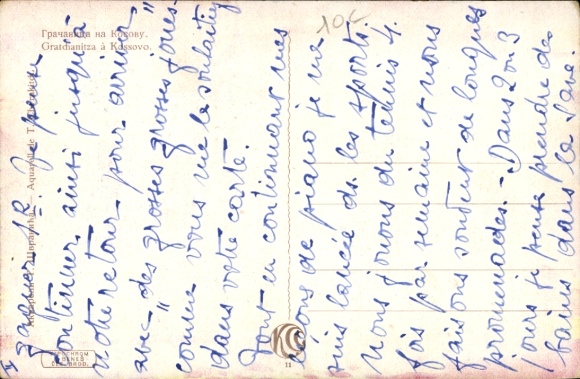 Грачаница на Косову.
Gratchanitza à Kossovo.
10c
Aquarelle de T.
gagner 1 k. Je pense
continuer ainsi jusqu'à
notre retour pour arriver
avec "des grosses joues"
comme vous me le souhaitez
dans votre carte.
Tout en continuant mes
leçons de piano je me
suis lancée ds. les sports.
Nous jouons du tennis 4
fois par semaine et nous
faisons souvent de longues
promenades. - Dans 2 ou 3
jours je pense prendre des
bains dans la Save.
11
II